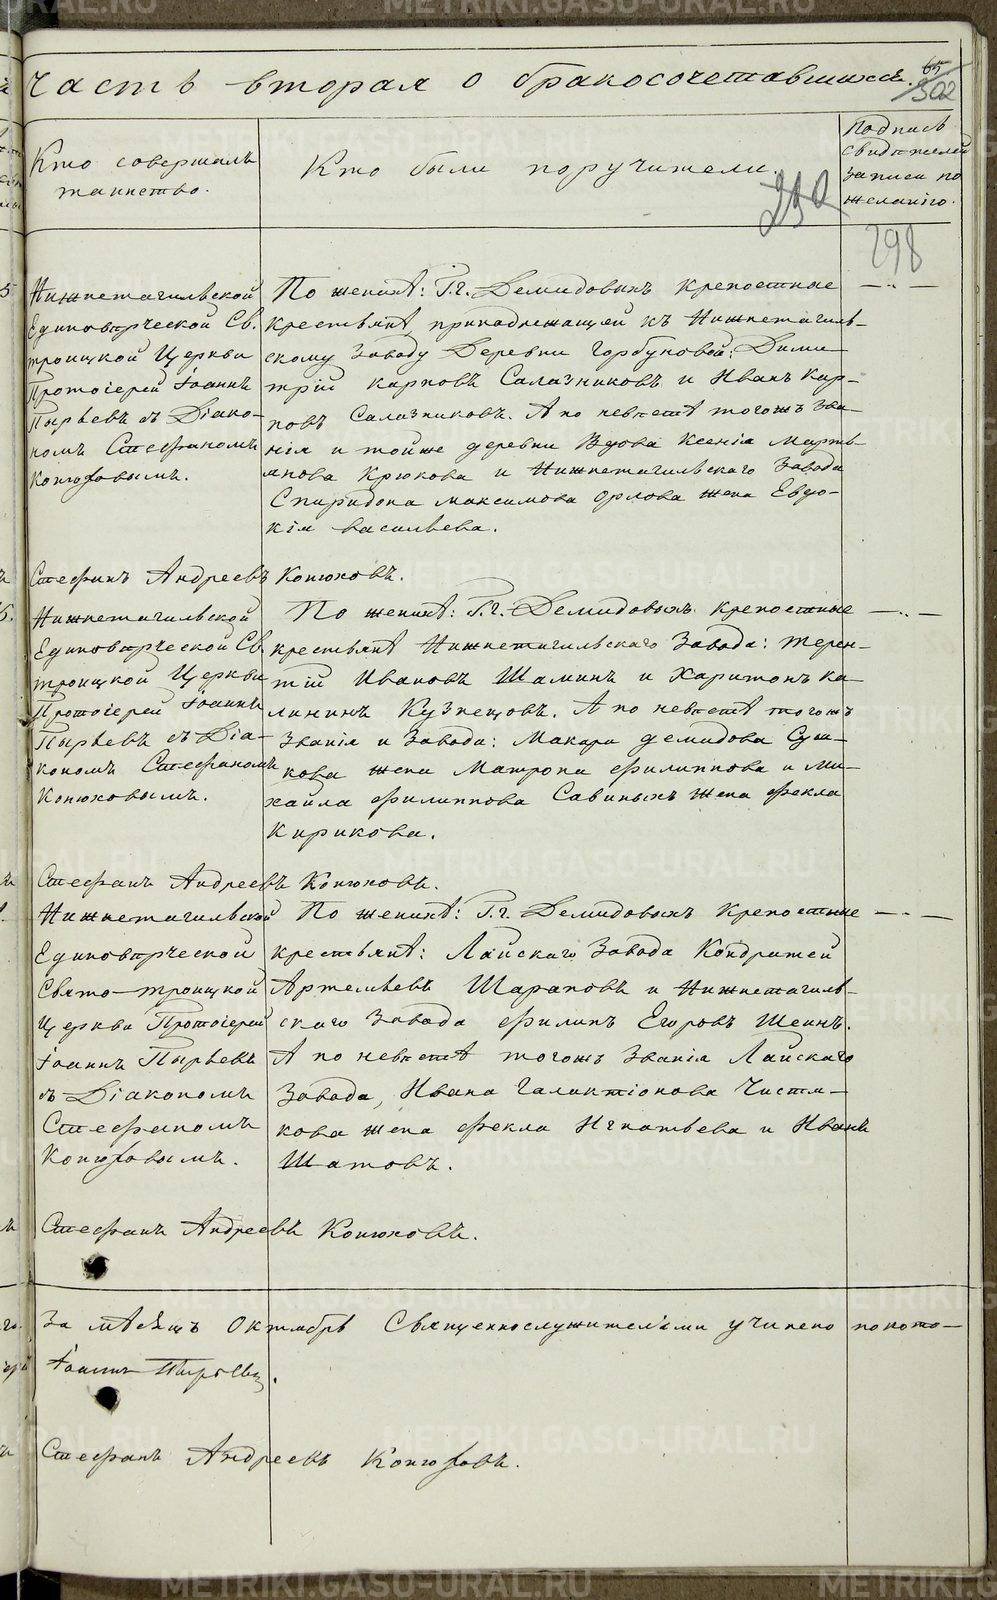 Часть вторая о бракосочетавшихся.
65
302
Кто совершалъ
таинство.
Кто были поручители.
290
Подпись
свидѣтелей
записи по
желанію.
298
Нижнетагильской
Единовѣрческой Св.
троицкой Церкви
Протоіерей Іоаннъ
Пырьевъ съ Діако-
номъ Стефаномъ
Конюховымъ.
По женихѣ: Г.г. Демидовыхъ крепостные
крестьянѣ принадлежащей къ Нижнетагиль-
скому Заводу Деревни Горбуновой: Дими-
трій карповъ Салазниковъ и Иванъ Кар-
повъ Салазниковъ. А по невѣстѣ тогожъ зва-
нія и тойже деревни Вдова Ксенія Марть-
янова Крюкова и Нижнетагильскаго Завода
Спиридона максимова Орлова жена Евдо-
кія васильева.
Стефанъ Андреевъ Конюховъ.
Нижнетагильской
Единовѣрческой Св.
троицкой Церкви
Протоіерей Іоаннъ
Пырьевъ съ Діа-
кономъ Стефаномъ
Конюховымъ.
По женихѣ: Г.г. Демидовыхъ крепостные
крестьянѣ Нижнетагильскаго Завода: терен-
тій Ивановъ Шаминъ и Харитонъ ка-
лининъ Кузнецовъ. А по невѣстѣ тогожъ
Званія и Завода: Макара демидова Суш-
кова жена Матрона филиппова и Ми-
хайла филиппова Савиныхъ жена фекла
Кирикова.
Стефанъ Андреевъ Конюховъ.
Нижнетагильской
Единовѣрческой
Свято-троицкой
Церкви Протоіерей
Іоаннъ Пырьевъ
съ Діакономъ
Стефаномъ
Конюховымъ.
По женихѣ: Г.г. Демидовыхъ крепостные
крестьянѣ: Лайскаго Завода Кондратей
Артемьевъ Шараповъ и Нижнетагиль-
скаго Завода филипъ Егоровъ Шеинъ.
А по невѣстѣ тогожъ Званія Лайскаго
Завода, Ивана Галактіонова Чистя-
кова жена фекла Игнатьева и Иванъ
Шатовъ.
Стефанъ Андреевъ Конюховъ.
За мѣсяцъ Октябрь Священнослужителями учинено покото-
Іоаннъ Пырьевъ.
Стефанъ Андреевъ Конюховъ.